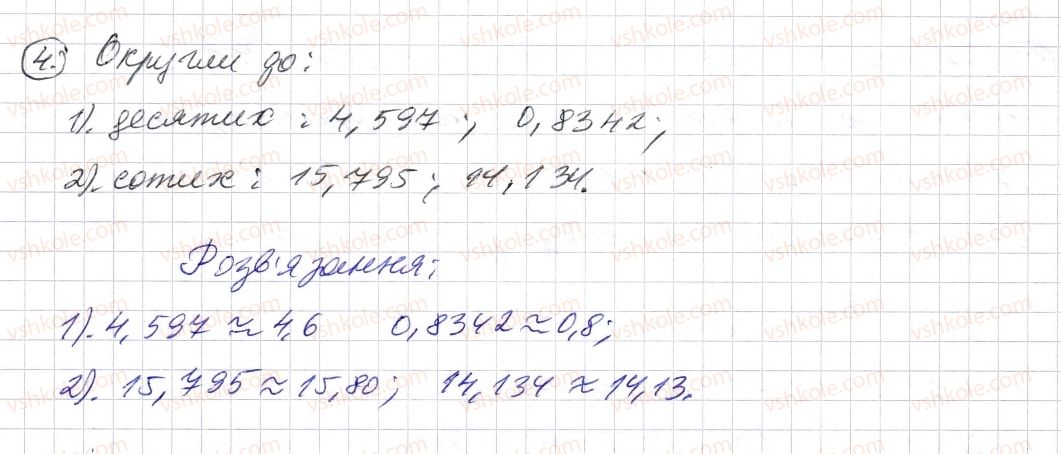 4. Округли до:
1). десятих : 4,597 ; 0,8342;
2). сотих : 15,795 ; 14,134.
Розв'язання:
1). 4,597 ≈ 4,6 0,8342 ≈ 0,8;
2). 15,795 ≈ 15,80 ; 14,134 ≈ 14,13.